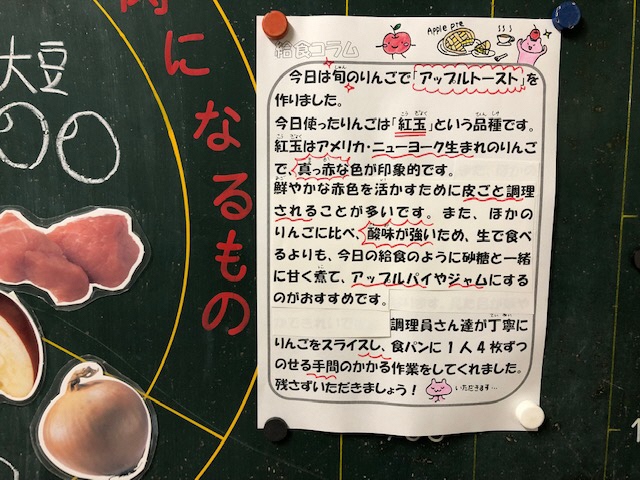 大豆
になるもの
給食コラム
Apple pie
今日は旬のりんごで「アップルトースト」を
作りました。
今日使ったりんごは「紅玉」という品種です。
紅玉はアメリカ・ニューヨーク生まれのりんご
で、真っ赤な色が印象的です。
鮮やかな赤色を活かすために皮ごと調理
されることが多いです。また、ほかの
りんごに比べ、酸味が強いため、生で食べ
るよりも、今日の給食のように砂糖と一緒
に甘く煮て、アップルパイやジャムにする
のがおすすめです。
調理員さん達が丁寧に
りんごをスライスし、食パンに1人4枚ずつ
のせる手間のかかる作業をしてくれました。
残さずいただきましょう！
いただきます…